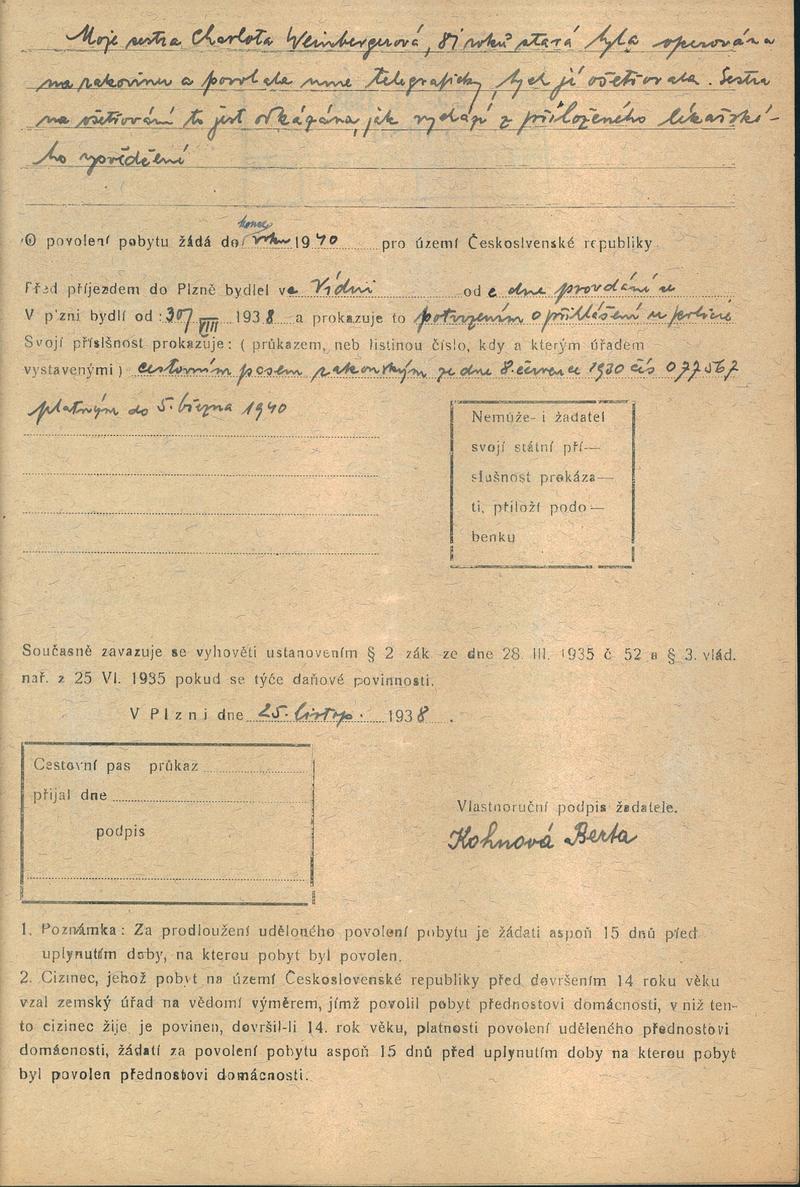 Moje sestra Charlota Weinbergerová, 81 roků stará byla operována
na rakovinu a povolala mne telegraficky bych jí ošetřovala. Sestra
na ošetřování to jest odkázána, jak vychází z přiloženého lékařské-
ho vysvědčení
konce
O povolení pobytu žádá do roku 1940 pro území Československé republiky
Před příjezdem do Plzně bydlel ve Vídni od e dne provdání se
V p'zni bydlí od: 30/VIII 1938 a prokazuje to potvrzením o přihlášení u policie
Svojí příslšnost prokazuje: ( průkazem, neb listinou číslo, kdy a kterým úřadem
vystavenými ) cestovním pasem rakouským ze dne 8. července 1930 čís 077567
platným do 5. března 1940
Nemůže- i žadatel
svojí státní pří—
slušnost prokáza—
ti, přiloží podo—
benku
Současně zavazuje se vyhověti ustanovením § 2 zák ze dne 28 III. 1935 č 52 a § 3. vlád.
nař. z 25 VI. 1935 pokud se týče daňové povinnosti.
V Plzni dne 25. listop. 1938.
Cestovní pas průkaz
přijal dne
podpis
Vlastnoruční podpis žadatele.
Kohnová Berta
1. Poznámka: Za prodloužení uděloného povolení pobytu je žádati aspoň 15 dnů před
uplynutím doby, na kterou pobyt byl povolen.
2. Cizinec, jehož pobyt na území Československé republiky před dovršením 14 roku věku
vzal zemský úřad na vědomí výměrem, jímž povolil pobyt přednostovi domácnosti, v niž ten-
to cizinec žije je povinen, dovršil-li 14. rok věku, platnosti povolení uděleného přednostovi
domácnosti, žádatí za povolení pobytu aspoň 15 dnů před uplynutím doby na kterou pobyt
byl povolen přednostovi domácnosti.